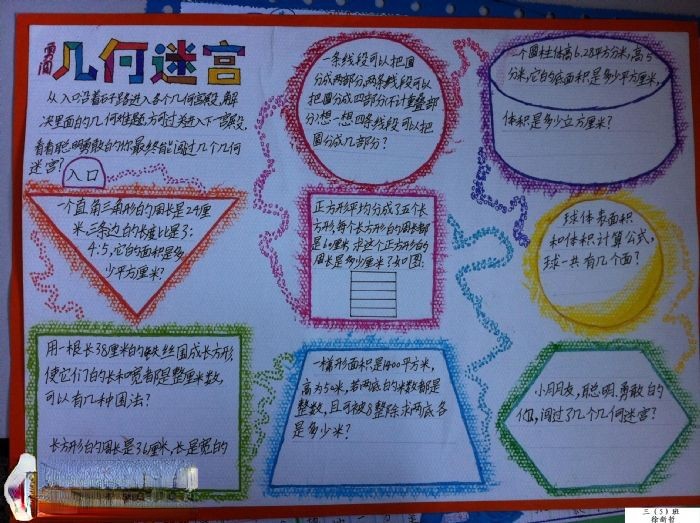 勇闯
几何迷宫
从入口沿着石子路进入各个几何宫殿,解
决里面的几何难题,方可过关进入下一宫殿,
看看聪明勇敢的你最终能闯过几个几何
迷宫?
入口
一个直角三角形的周长是24厘
米,三条边的长度比是3:
4:5,它的面积是多
少平方厘米?
用一根长38厘米的铁丝围成长方形,
使它们的长和宽都是整厘米数,
可以有几种围法?
长方形的周长是36厘米,长是宽的
一条线段可以把圆
分成两部分,两条线段可以
把圆分成四部分(不计重叠部
分)想一想四条线段可以把
圆分成几部分?
正方形平均分成了五个长
方形,每个长方形的周长都
是60厘米,求这个正方形的
周长是多少厘米?如图:
一梯形面积是1400平方米,
高为50米,若两底的米数都是
整数,且可被8整除求两底各
是多少米?
一个圆柱体高6.28平方分米,高5
分米,它的底面积是多少平方厘米,
体积是多少立方厘米?
球体表面积
和体积计算公式,
球一共有几个面?
小朋友,聪明、勇敢的
你,闯过了几个几何迷宫?
三(5)班